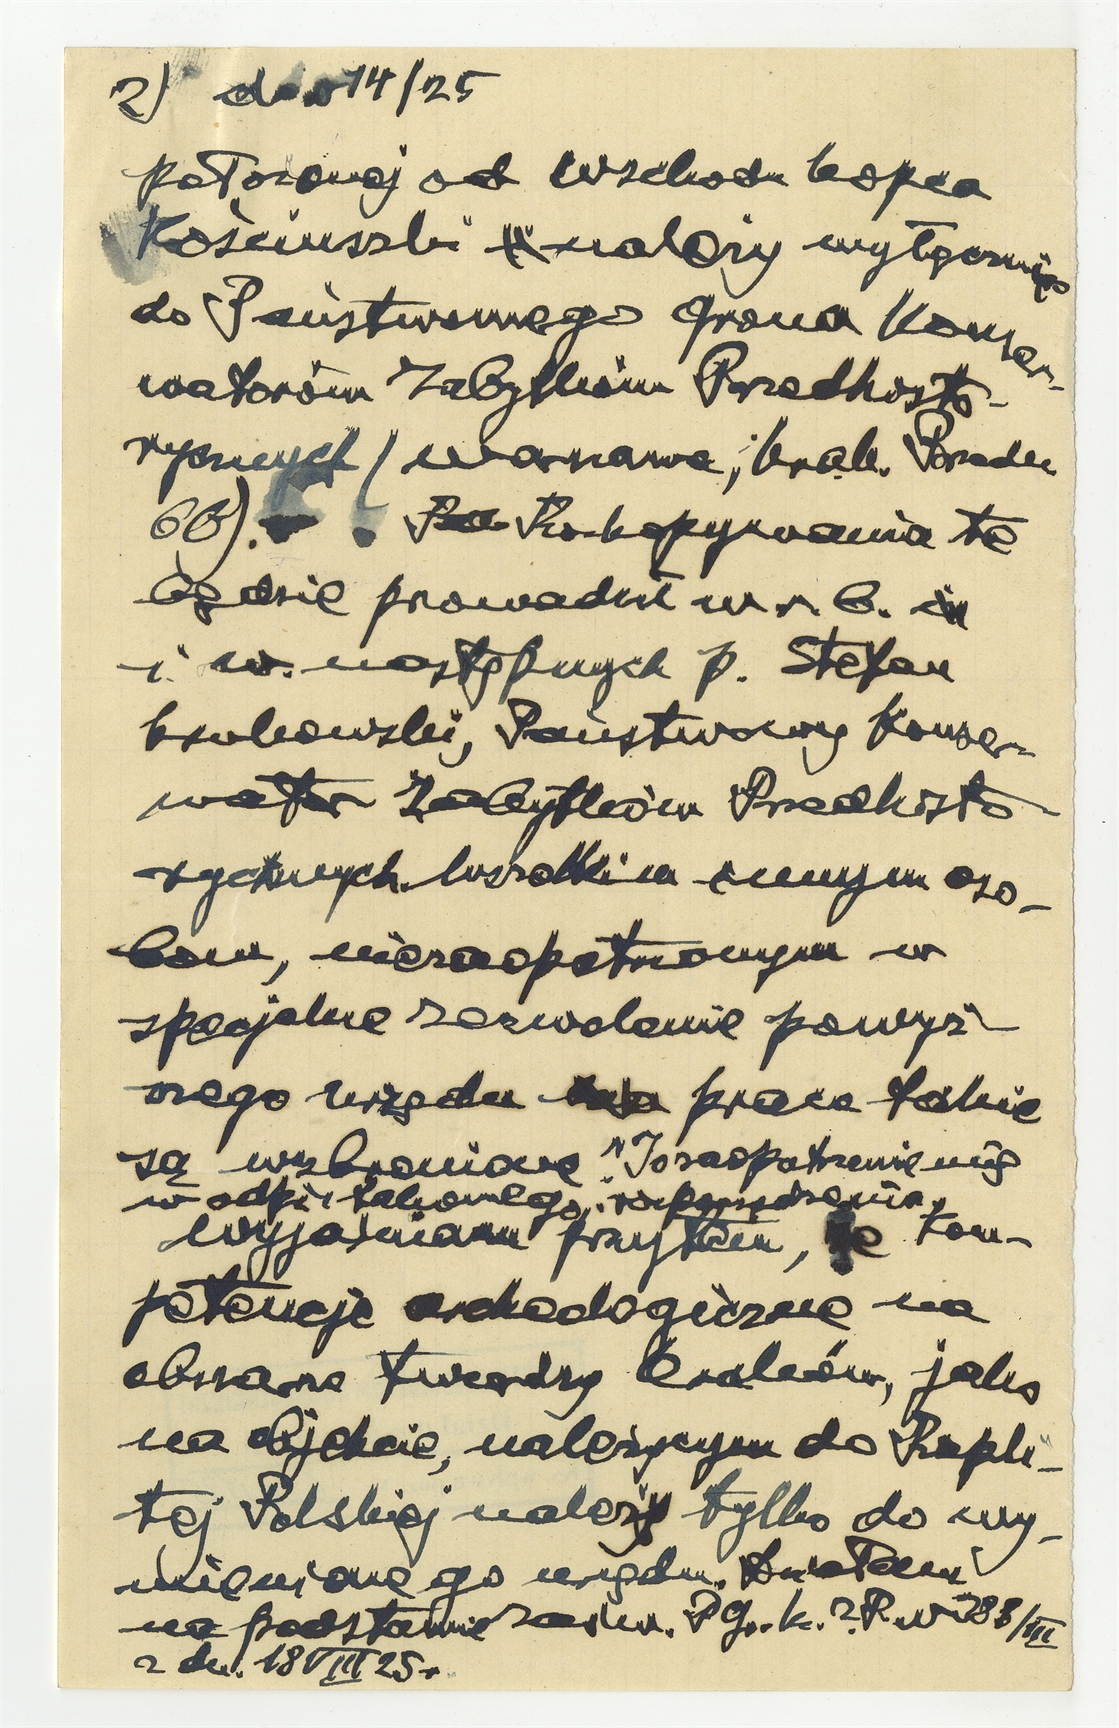 2) do 14/25
położonej od wschodu kopca
Kościuszki należy wyłącznie
do Państwowego Grona Konser-
watorów Zabytków Przedhisto-
rycznych (Warszawa, Krak. Przedm.
66). Rozkopywania te
będzie prowadził w r. b.
i w. następnych p. Stefan
Krukowski, Państwowy Konser-
wator Zabytków Przedhisto-
rycznych. Wszelkim innym oso-
bom, niezaopatrzonym w
specjalne zezwolenie powyż-
szego urzędu prace takie
są wzbronione
zaopatrzenie
w odpis takowego rozporządzenia.
Wyjaśniam przytem, że kom-
petencje archeologiczne na
obszarze twierdzy Kraków, jako
na objekcie, należącym do Rzpli-
tej Polskiej należy tylko do wy-
mienionego urzędu.
na podstawie P. G. k. Z. P. N 288/III
z dn. 18 VIII 25 r.